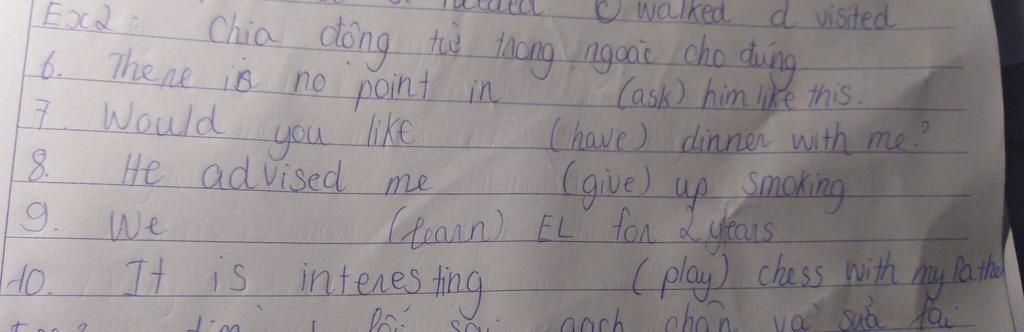 needed C walked d visited
Ex2: Chia động từ trong ngoặc cho đúng
6. There is no point in (ask) him like this.
7. Would you like (have) dinner with me?
8. He advised me (give) up smoking
9. We (learn) EL for 2 years
10. It is interesting (play) chess with my fathe
lỗi sai gạch chân và sửa lại